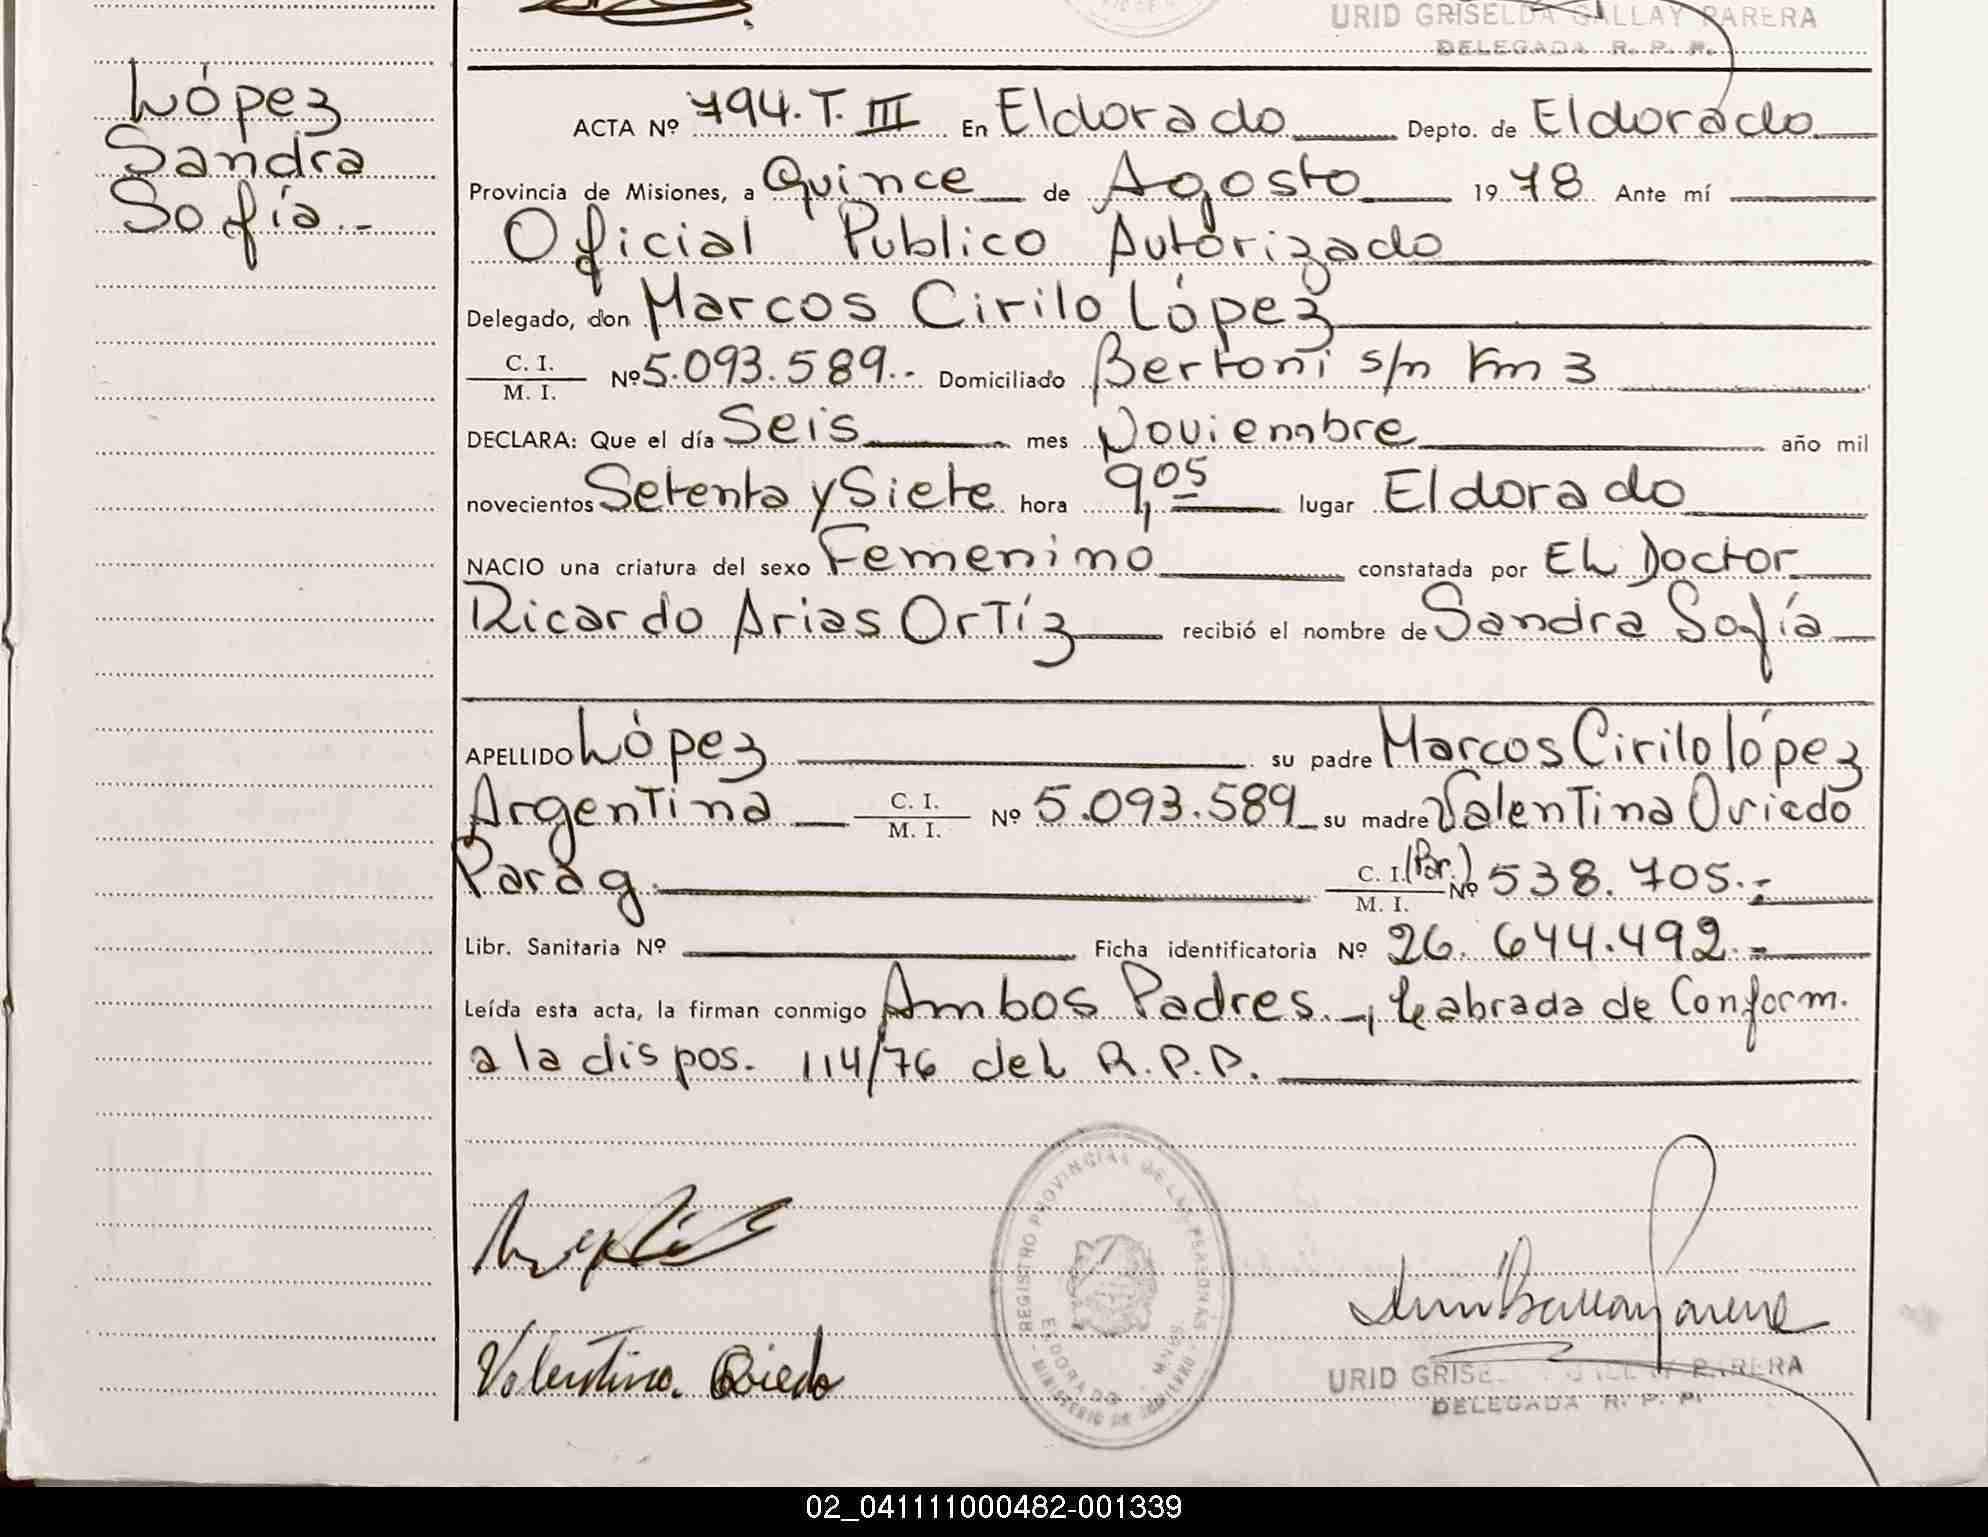 URID GRISELDA GALLAY PARERA
DELEGADA R. P. P.
López
Sandra
Sofía.-
ACTA Nº 794. T. III En Eldorado Depto. de Eldorado
Provincia de Misiones, a Quince de Agosto 1978 Ante mí
Oficial Publico Autorizado
Delegado, don Marcos Cirilo López
C. I.
M. I. Nº 5.093.589.- Domiciliado Bertoni s/n Km 3
DECLARA: Que el día Seis mes Noviembre año mil
novecientos Setenta y Siete hora 9,05 lugar Eldorado
NACIO una criatura del sexo Femenino constatada por El Doctor
Ricardo Arias Ortíz recibió el nombre de Sandra Sofía
APELLIDO López su padre Marcos Cirilo López
Argentina C. I. M. I. Nº 5.093.589 su madre Valentina Oviedo
Parag. C. I. (Par.) M. I. Nº 538.705.-
Libr. Sanitaria Nº Ficha identificatoria Nº 26.644.492.-
Leída esta acta, la firman conmigo Ambos Padres.-, labrada de Conform.
a la dispos. 114/76 del R.P.P.
REGISTRO PROVINCIAL DE LAS PERSONAS
ELDORADO - MNES
MINISTERIO DE GOBIERNO
Valentina Oviedo
URID GRISELDA GALLAY PARERA
DELEGADA R. P. P.
02_041111000482-001339